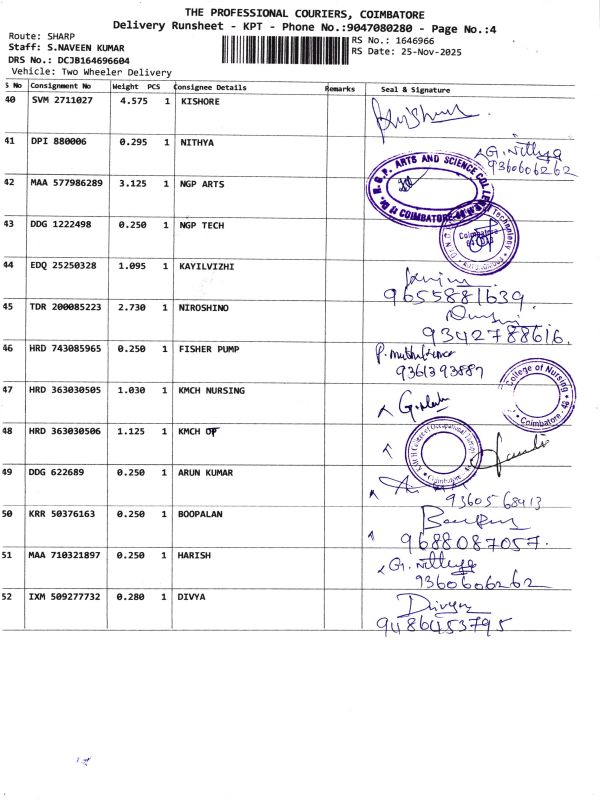 THE PROFESSIONAL COURIERS, COIMBATORE
Delivery Runsheet - KPT - Phone No.:9047080280 - Page No.:4
Route: SHARP
RS No.: 1646966
Staff: S.NAVEEN KUMAR
RS Date: 25-Nov-2025
DRS No.: DCJB164696604
Vehicle: Two Wheeler Delivery
S No Consignment No Weight PCS Consignee Details Remarks Seal & Signature
40 SVM 2711027 4.575 1 KISHORE
41 DPI 880006 0.295 1 NITHYA G. Nithya
9360606262
42 MAA 577986289 3.125 1 NGP ARTS N.G.P. ARTS AND SCIENCE COLLEGE COIMBATORE
43 DDG 1222498 0.250 1 NGP TECH Technology Coimbatore
44 EDQ 25250328 1.095 1 KAYILVIZHI
9655881639
45 TDR 200085223 2.730 1 NIROSHINO
9342788616.
46 HRD 743085965 0.250 1 FISHER PUMP
9361393887
47 HRD 363030505 1.030 1 KMCH NURSING College of Nursing Coimbatore - 48
48 HRD 363030506 1.125 1 KMCH OT College of Occupational Therapy Coimbatore
49 DDG 622689 0.250 1 ARUN KUMAR
9360568413
50 KRR 50376163 0.250 1 BOOPALAN
9688087057.
51 MAA 710321897 0.250 1 HARISH G. Nithya
9360606262
52 IXM 509277732 0.280 1 DIVYA Divya
9486453795